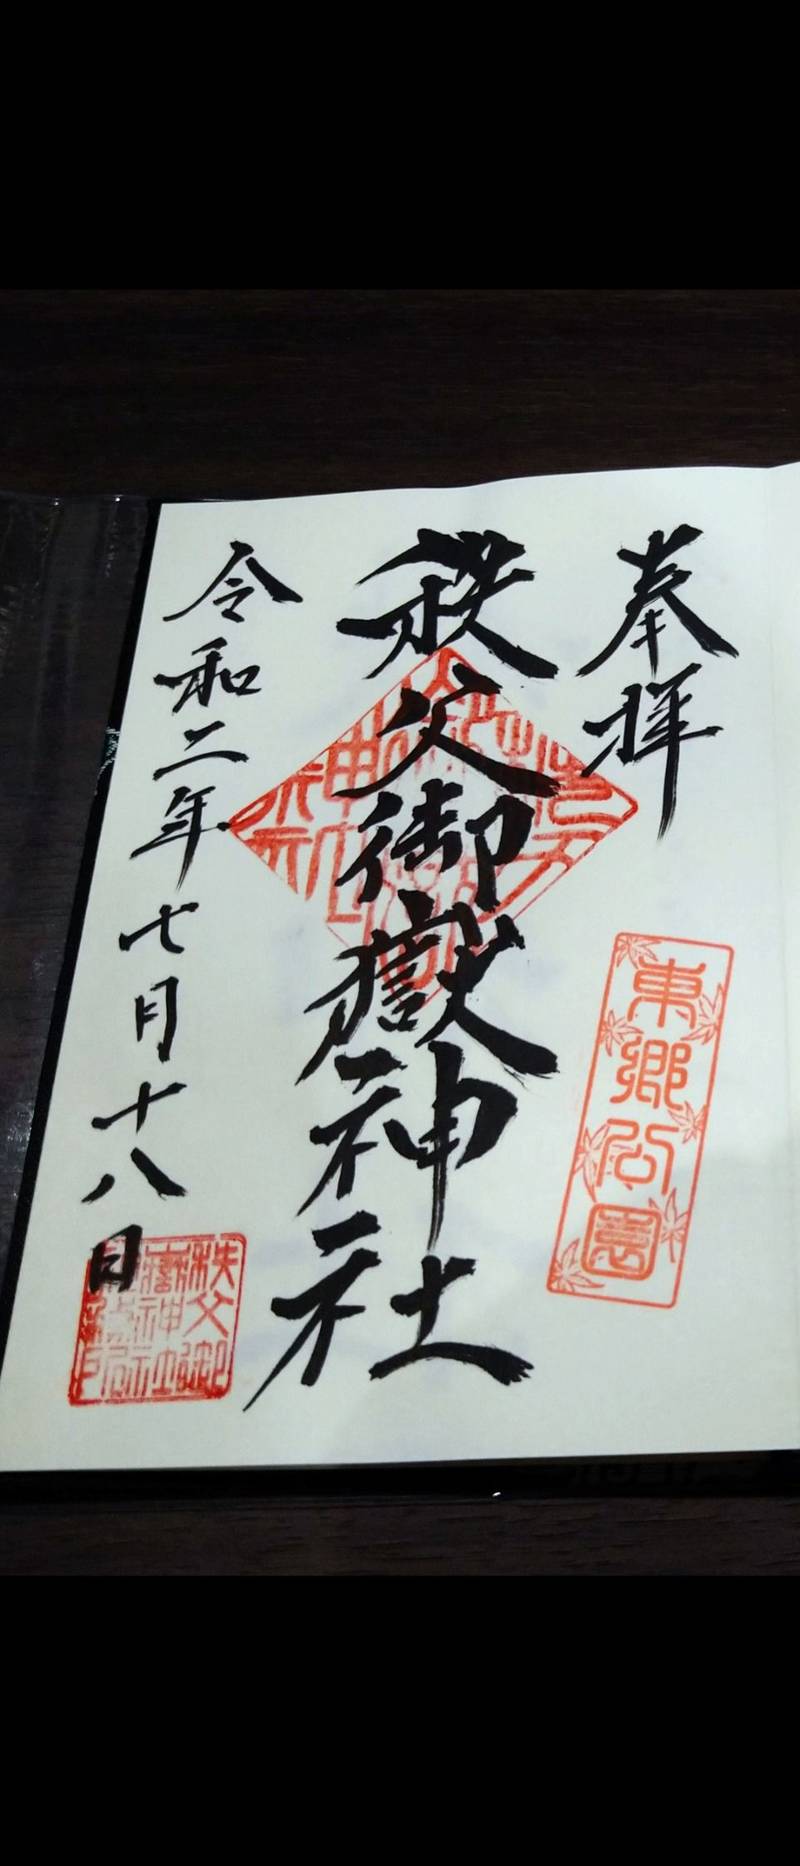 奉拝
東郷公園
秩父御嶽神社
令和二年七月十八日
秩父御
嶽神社